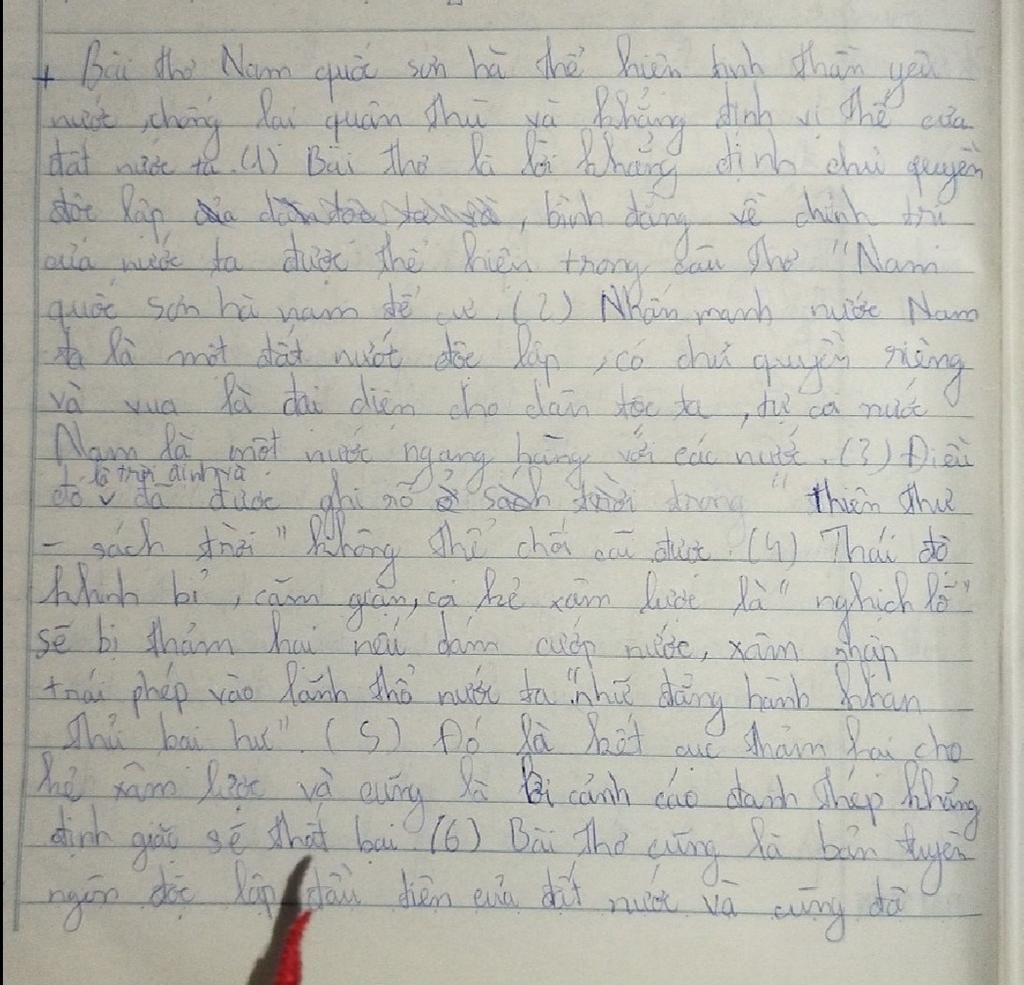 + Bài thơ Nam quốc sơn hà thể hiện tinh thần yêu
nước, chống lại quân thù và khẳng định vị thế của
đất nước ta. (1) Bài thơ là lời khẳng định chủ quyền
độc lập của dân tộc ta và, bình đẳng về chính trị
của nước ta được thể hiện trong câu thơ "Nam
quốc sơn hà nam đế cư. (2) Nhấn mạnh nước Nam
ta là một đất nướt độc lập, có chủ quyền riêng
và vua là đại diện cho dân tộc ta, tự ca nước
Nam là một nước ngang hàng với các nước. (3) Điều
là trời định và
đó v đã được ghi rõ ở sách trời trong "thiên thư
- sách trời" không thể chối cãi được. (4) Thái độ
khinh bỉ, căm giận, cả kẻ xâm lược là "nghịch lỗ"
sẽ bị thảm hại nếu dám cướp nước, xâm nhập
trái phép vào lãnh thổ nước ta "nhữ đẳng hành khan
thủ bại hư". (5) Đó là kết cục thảm hại cho
kẻ xâm lược và cũng là lời cảnh cáo đanh thép khẳng
định giặc sẽ thất bại (6) Bài thơ cũng là bản tuyên
ngôn độc lập đầu tiên của đất nước và cũng đã